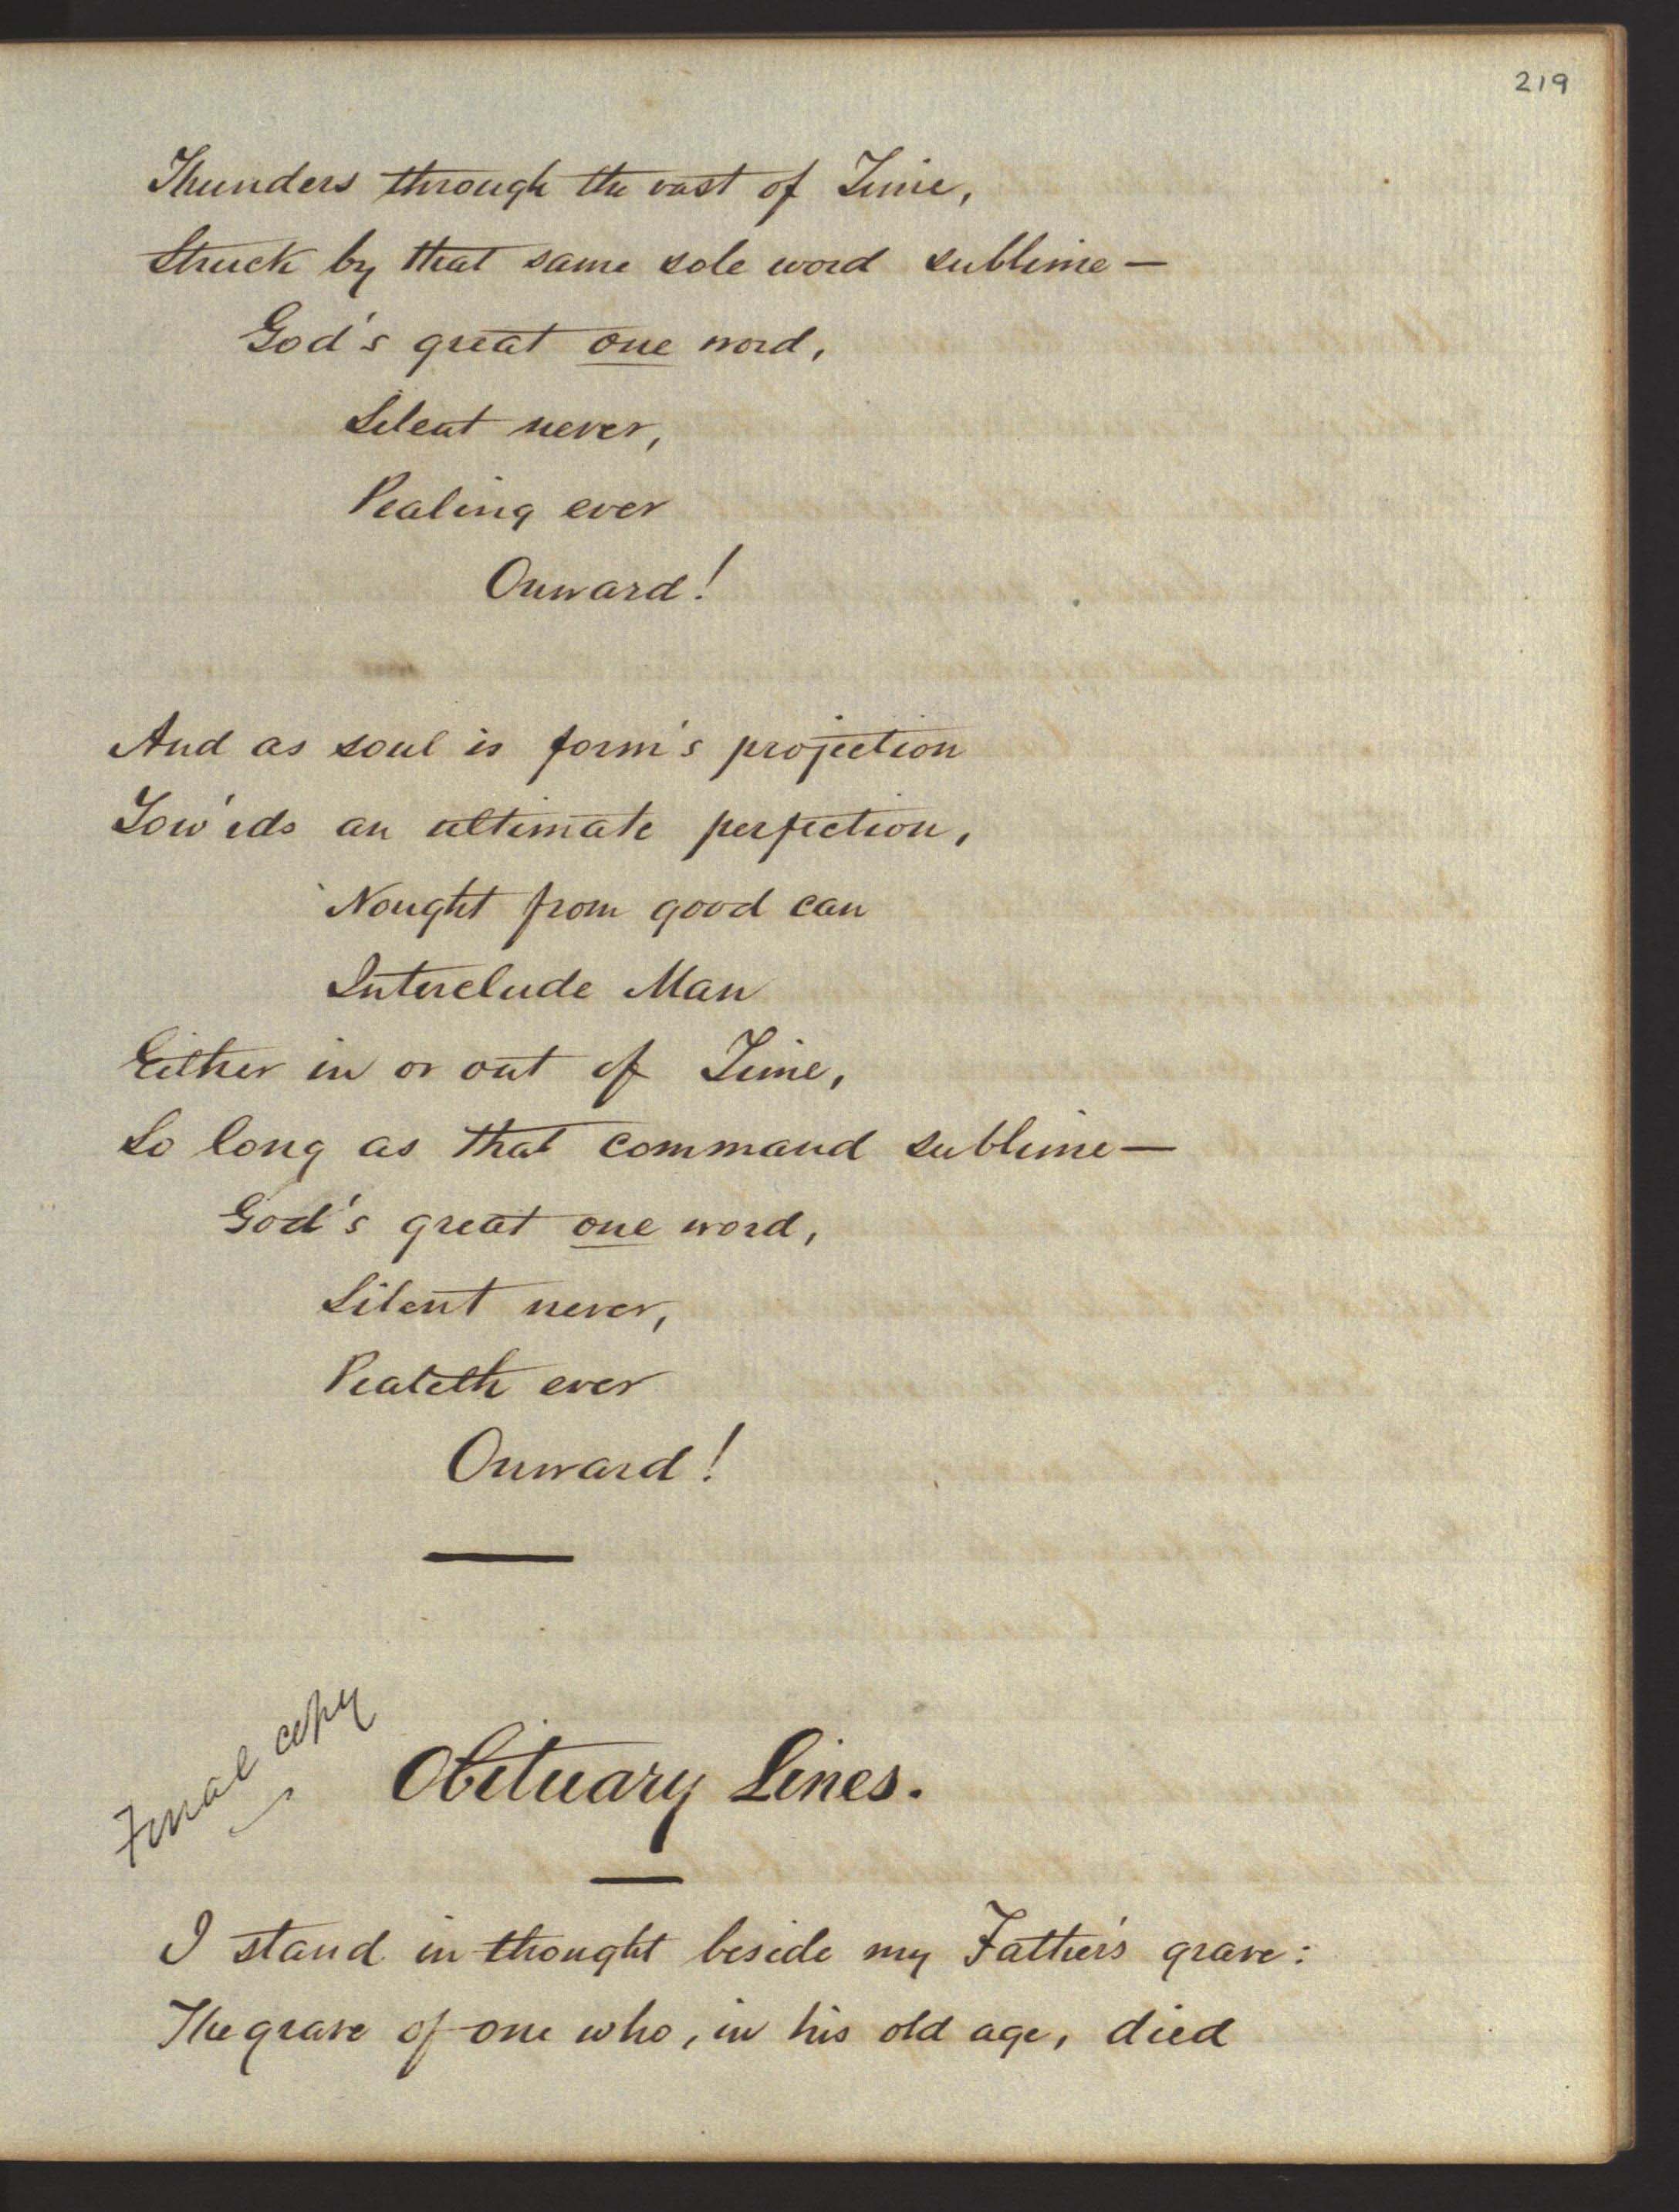 219
Thunders through the vast of Time,
Struck by that same sole word sublime—
God's great one word,
Silent never,
Pealing ever
Onward!
And as soul is form's projection
Tow'rds an ultimate perfection,
Nought from good can
Interclude Man
Either in or out of Time,
So long as that command sublime—
God's great one word,
Silent never,
Pealeth ever
Onward!
Final copy
Obituary Lines.
I stand in thought beside my Father's grave:
The grave of one who, in his old age, died